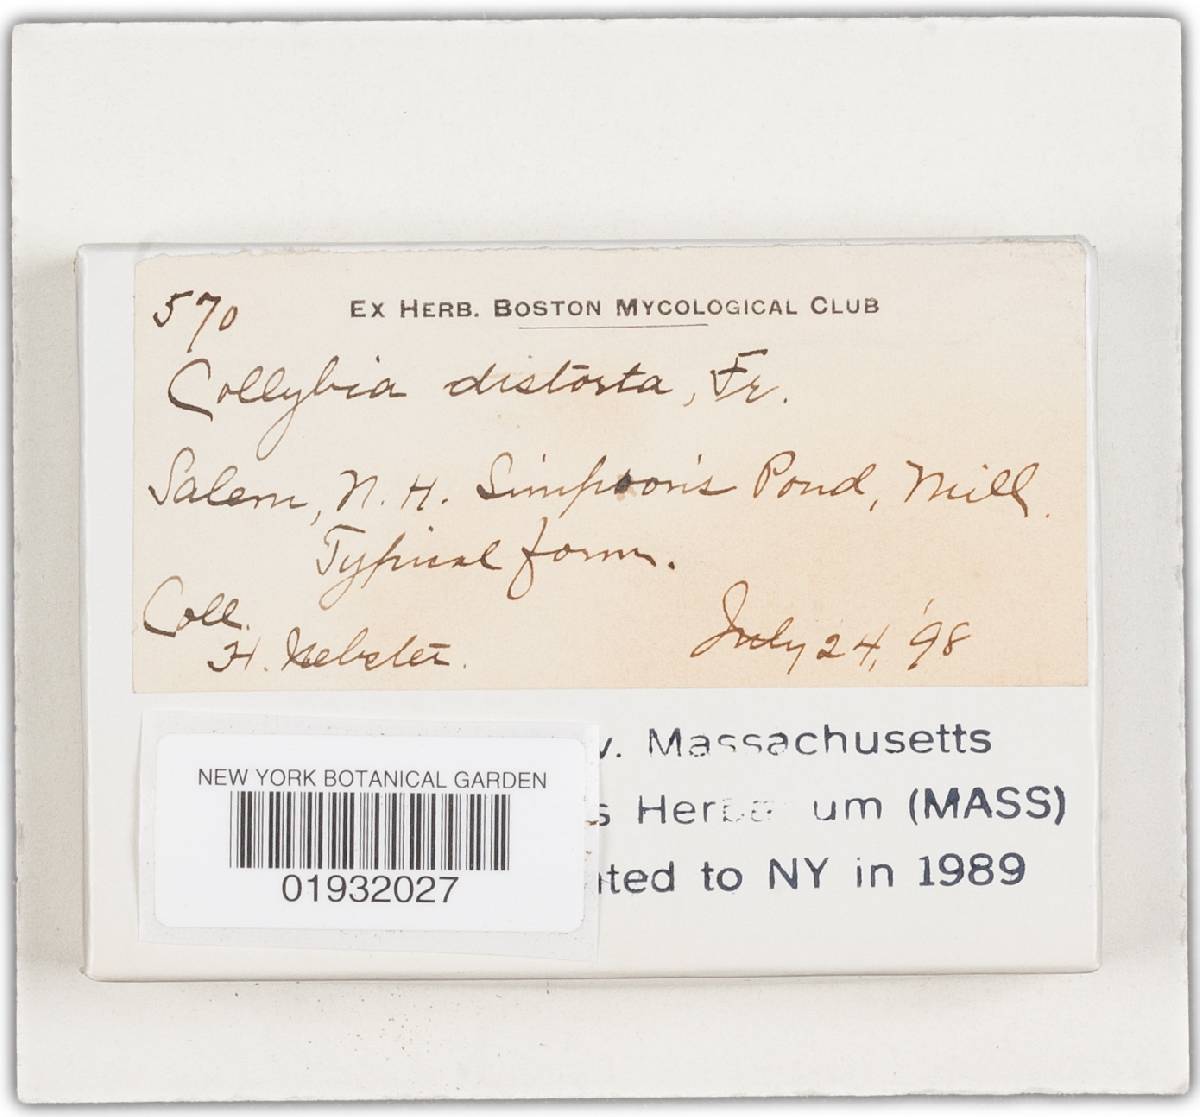 570
EX HERB. BOSTON MYCOLOGICAL CLUB
Collybia distorta, Fr.
Salem, N. H. Simpson's Pond, Mill.
Typical form.
Coll.
H. Webster.
July 24, '98
v. Massachusetts
s Herba um (MASS)
ted to NY in 1989
NEW YORK BOTANICAL GARDEN
01932027